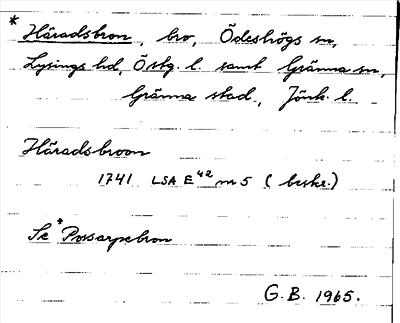 * Häradsbron, bro, Ödeshögs sn,
Lysings hd, Östg. l. samt Gränna sn,
Gränna stad., Jönk. l.
Häradsbroon
1741 LSA E⁴² nr 5 (beskr.)
Se *Possarpebron
G.B. 1965.